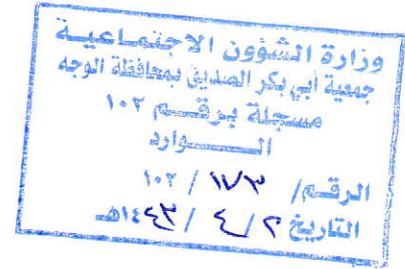 وزارة الشؤون الاجتماعية
جمعية أبي بكر الصديق بمحافظة الوجه
مسجلة برقم ١٠٢
الوارد
الرقم/ ١٧٣ / ١٠٢
التاريخ ٢ / ٤ / ١٤٤٣هـ